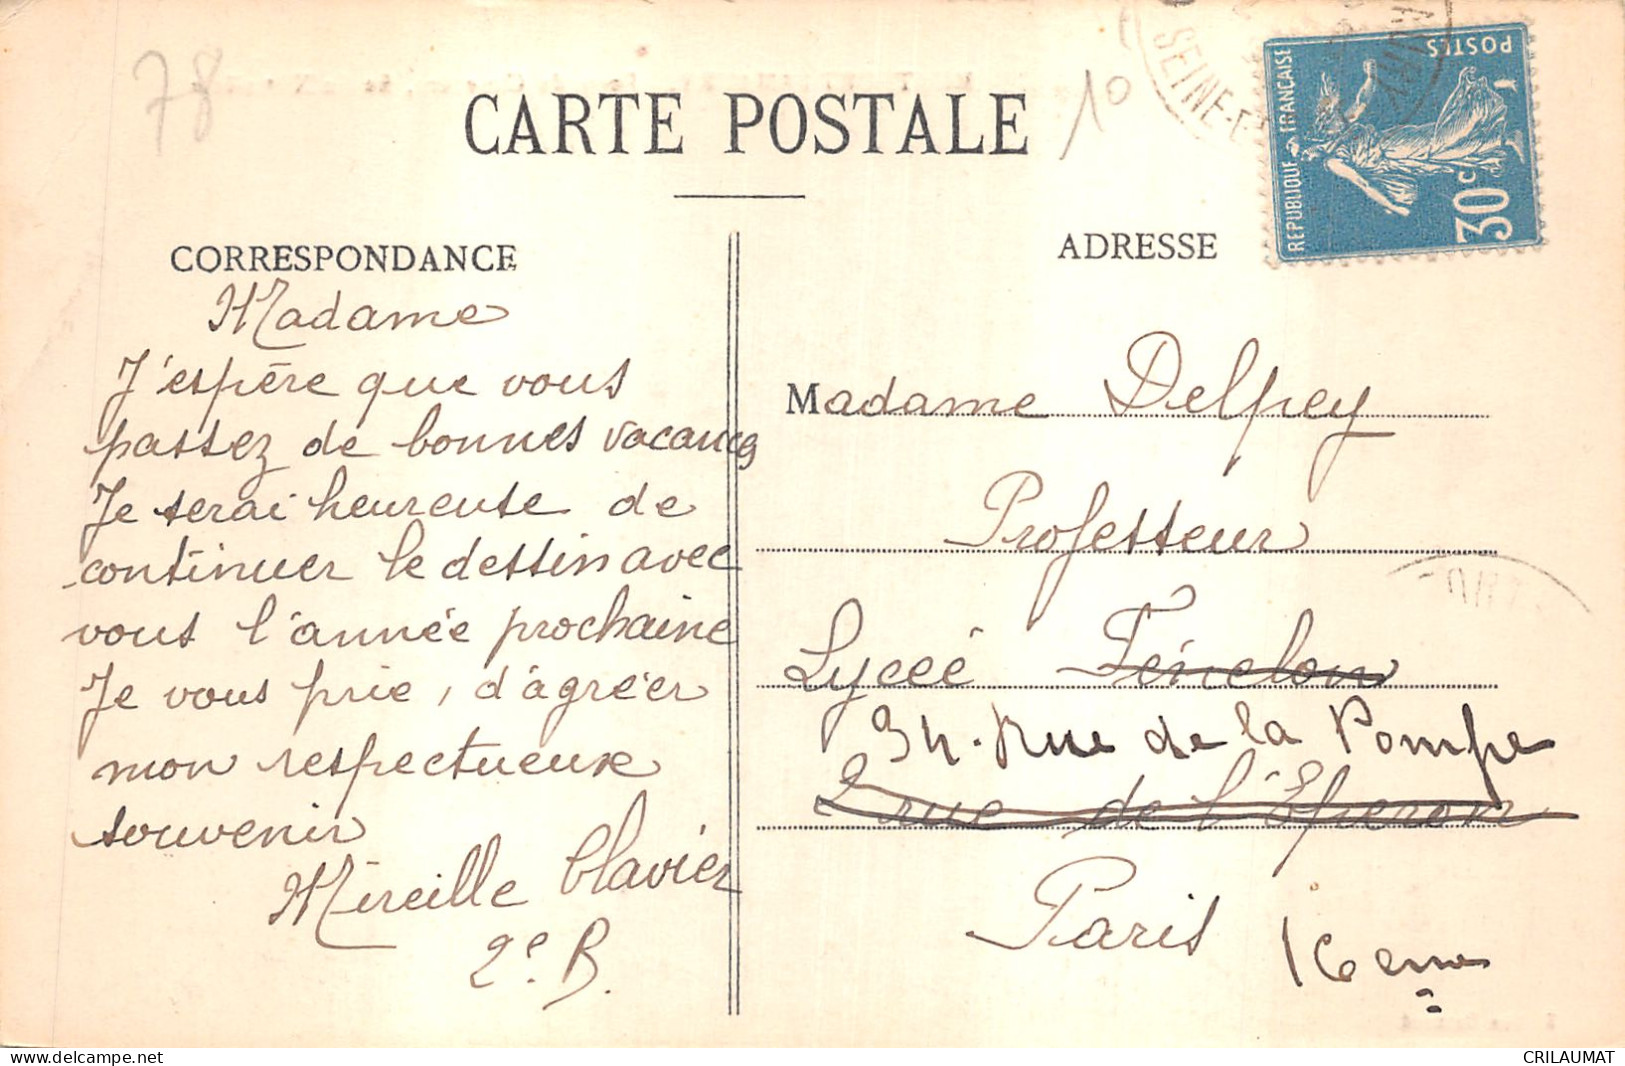 78
CARTE POSTALE
10
SEINE-E
REPUBLIQUE FRANÇAISE
POSTES
30c
CORRESPONDANCE
Madame
J'espère que vous
passez de bonnes vacances
Je serai heureuse de
continuer le dessin avec
vous l'année prochaine
Je vous prie, d'agréer
mon respectueux
souvenir
Mireille Clavier
2e B.
ADRESSE
Madame Delpey
Professeur
Lycée Fénelon
34. Rue de la Pompe
2 rue de l'Éperon
Paris 16eme
delcampe.net
CRILAUMAT